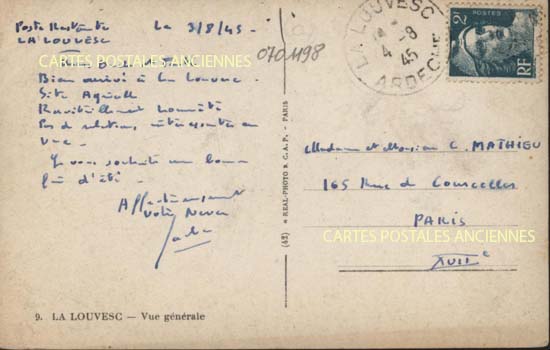 Poste Restante
LA LOUVESC
le 3/8/45 -
0701198
CARTES POSTALES ANCIENNES
Bien arrivé à La Louvesc.
Site Agréable
Ravitaillement honnête
Pas de relations intéressantes en
vue -
Je vous souhaite une bonne
fin d'été -
Affectueusement
Votre Neveu
LA LOUVESC
4-8
45
ARDECHE
2F
POSTES
RF
(42) * REAL-PHOTO * C. A. P. - PARIS
Madame et Monsieur C. MATHIEU
165 Rue de Courcelles
PARIS
CARTES POSTALES ANCIENNES
XVIIe
9. LA LOUVESC — Vue générale